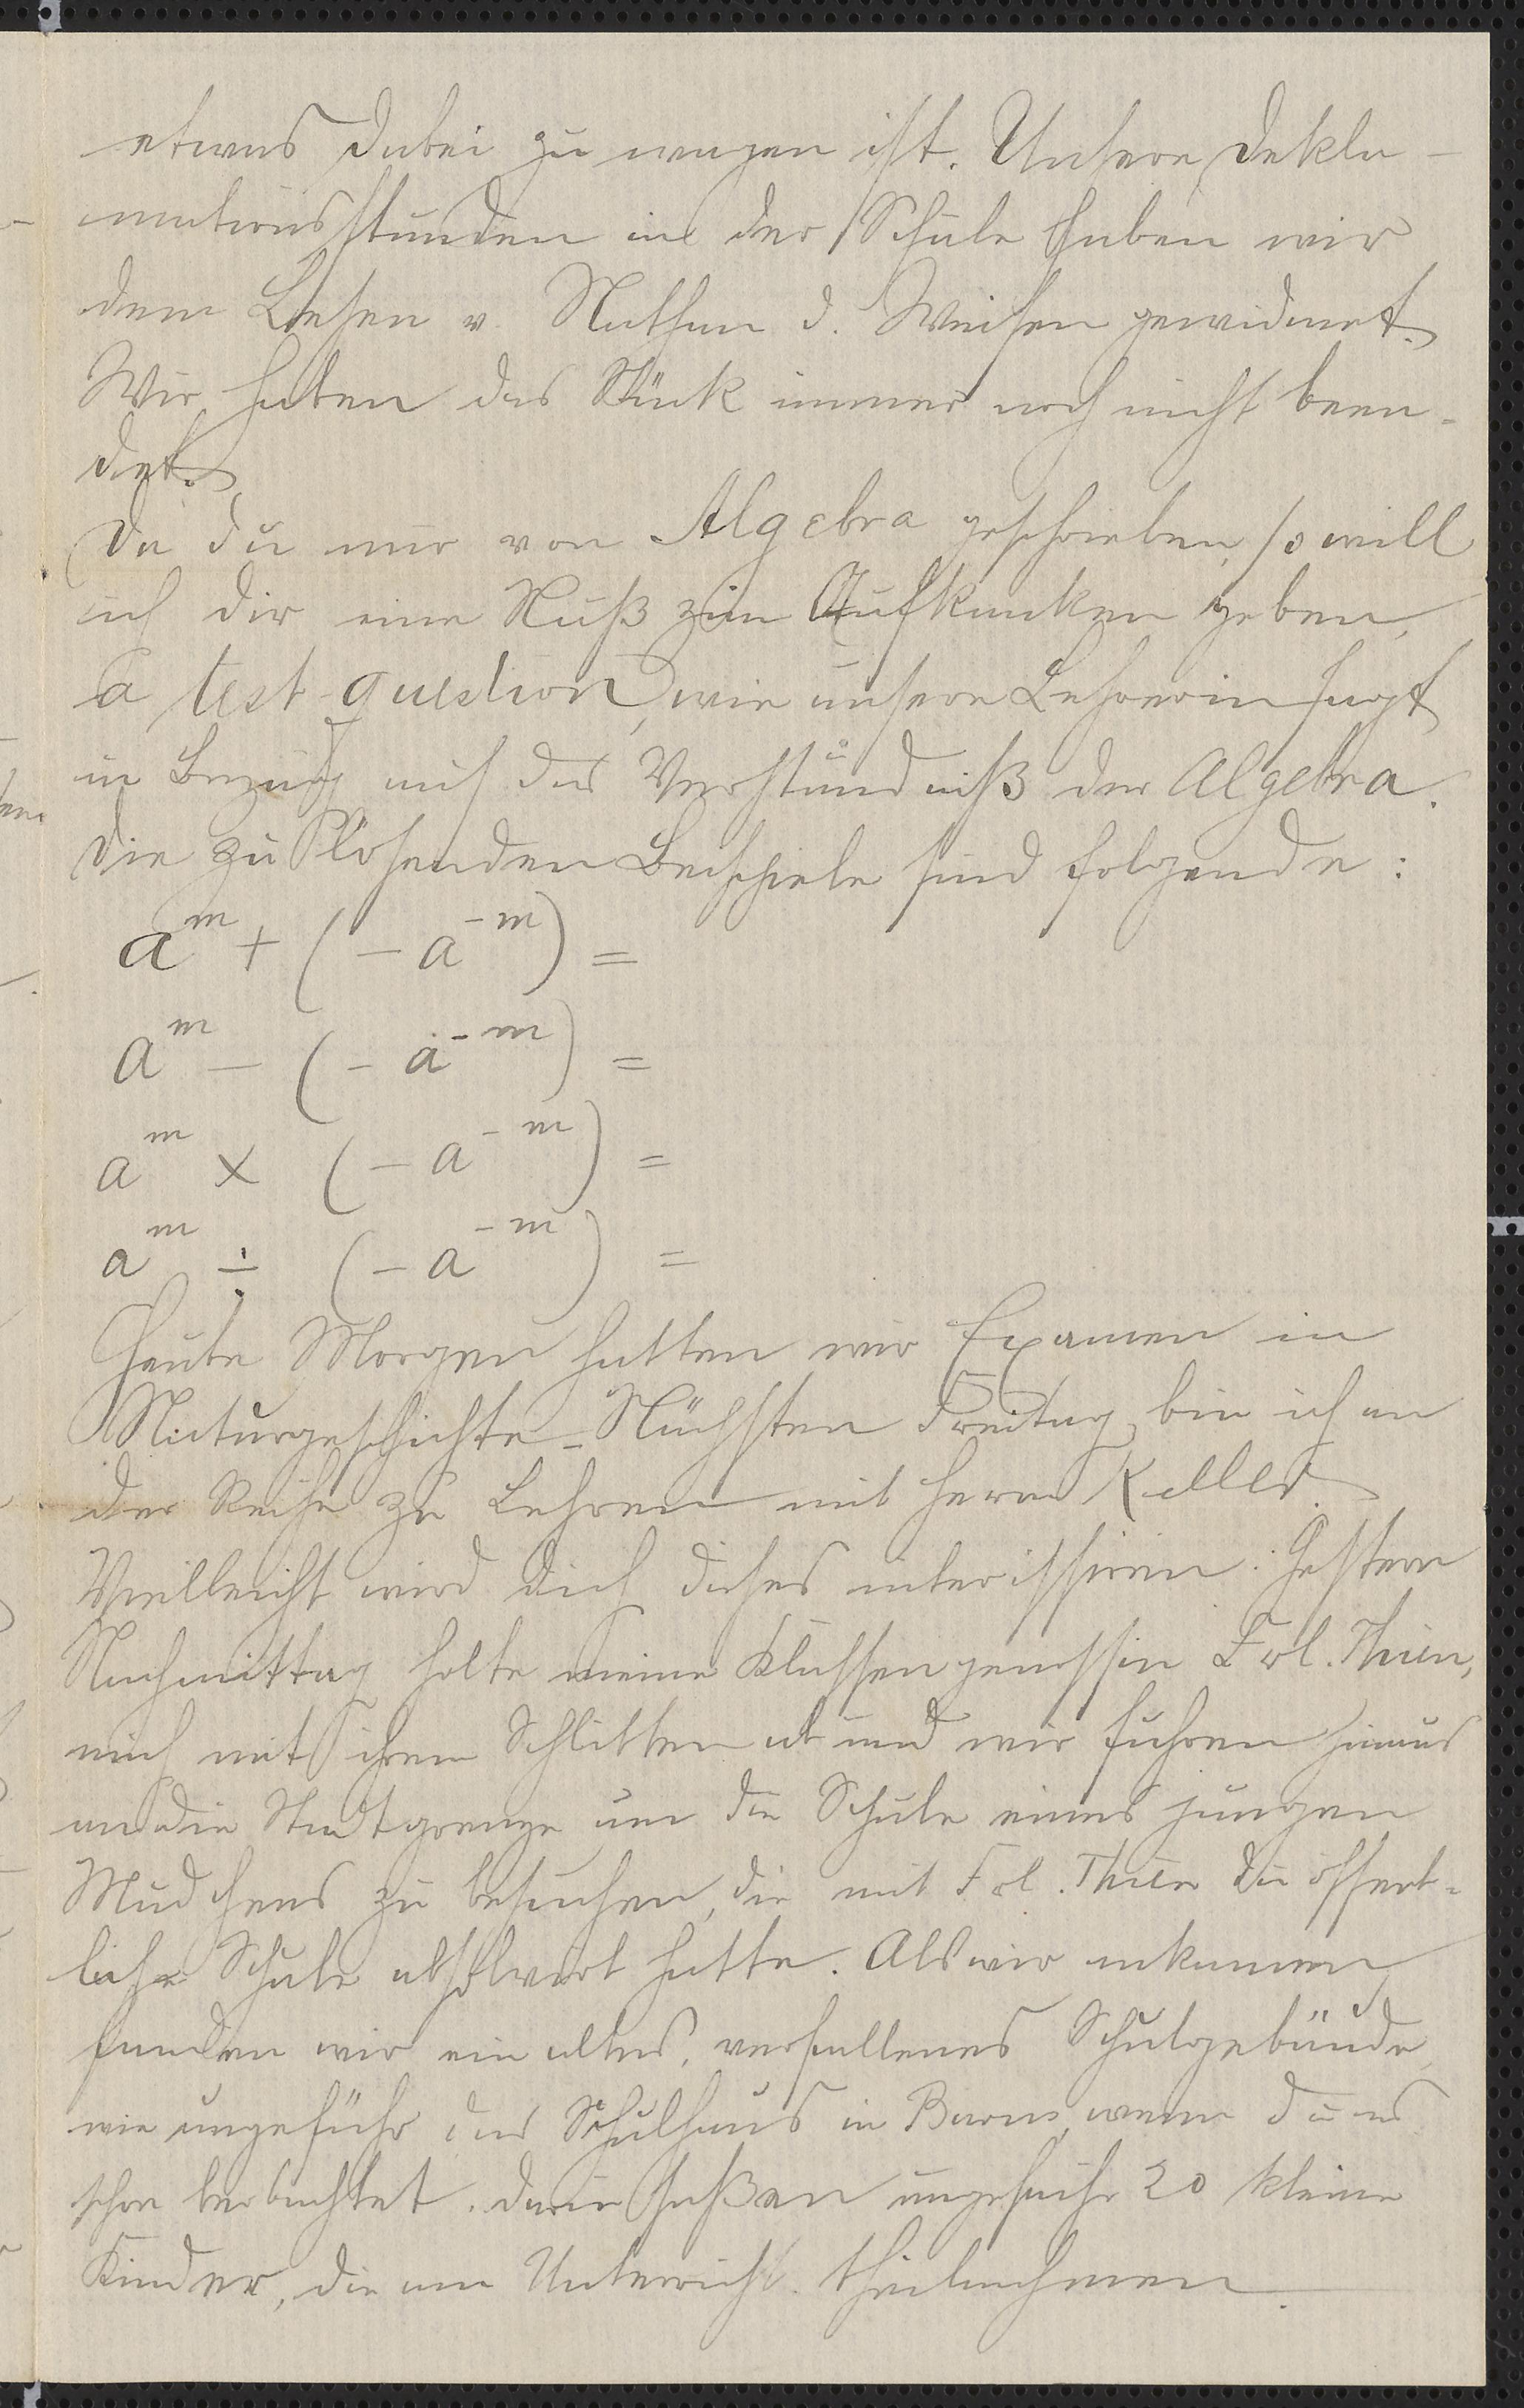 etwas dabei zu wagen ist. Unsere Dekla-
mationsstunden in der Schule haben wir
dem Lesen v. Nathan d. Weisen gewidmet.
Wir haben das Stück immer noch nicht been-
det.
Da du mir von Algebra geschrieben, so will
ich dir eine Nuß zum Aufknacken geben,
a test question, wie unsere Lehrerin sagt
in Bezug auf das Verständniß der Algebra.
Die zu lösenden Beispiele sind folgende:
a^m + (- a^-m) =
a^m - (- a^-m) =
a^m × (- a^-m) =
a^m ÷ (- a^-m) =
Heute Morgen hatten wir Examen in
Naturgeschichte. Nächsten Freitag bin ich an
der Reihe zu Lehren mit Herrn Keller.
Vielleicht wird dich dieses interissiren: Gestern
Nachmittag holte meine Klassengenossin Frl. Thien,
mich mit ihrem Schlitten ab und wir fuhren hinaus
an die Stadtgrenze um die Schule eines jungen
Mädchens zu besuchen, die mit Frl. Thien die öffent-
liche Schule absolvirt hatte. Als wir ankamen
fanden wir ein altes, verfallenes Schulgebäude,
wie ungefähr das Schulhaus in wenn du es
schon beobachtet. Darin saßen ungefähr 20 kleine
Kinder, die am Unterricht theilnahmen.